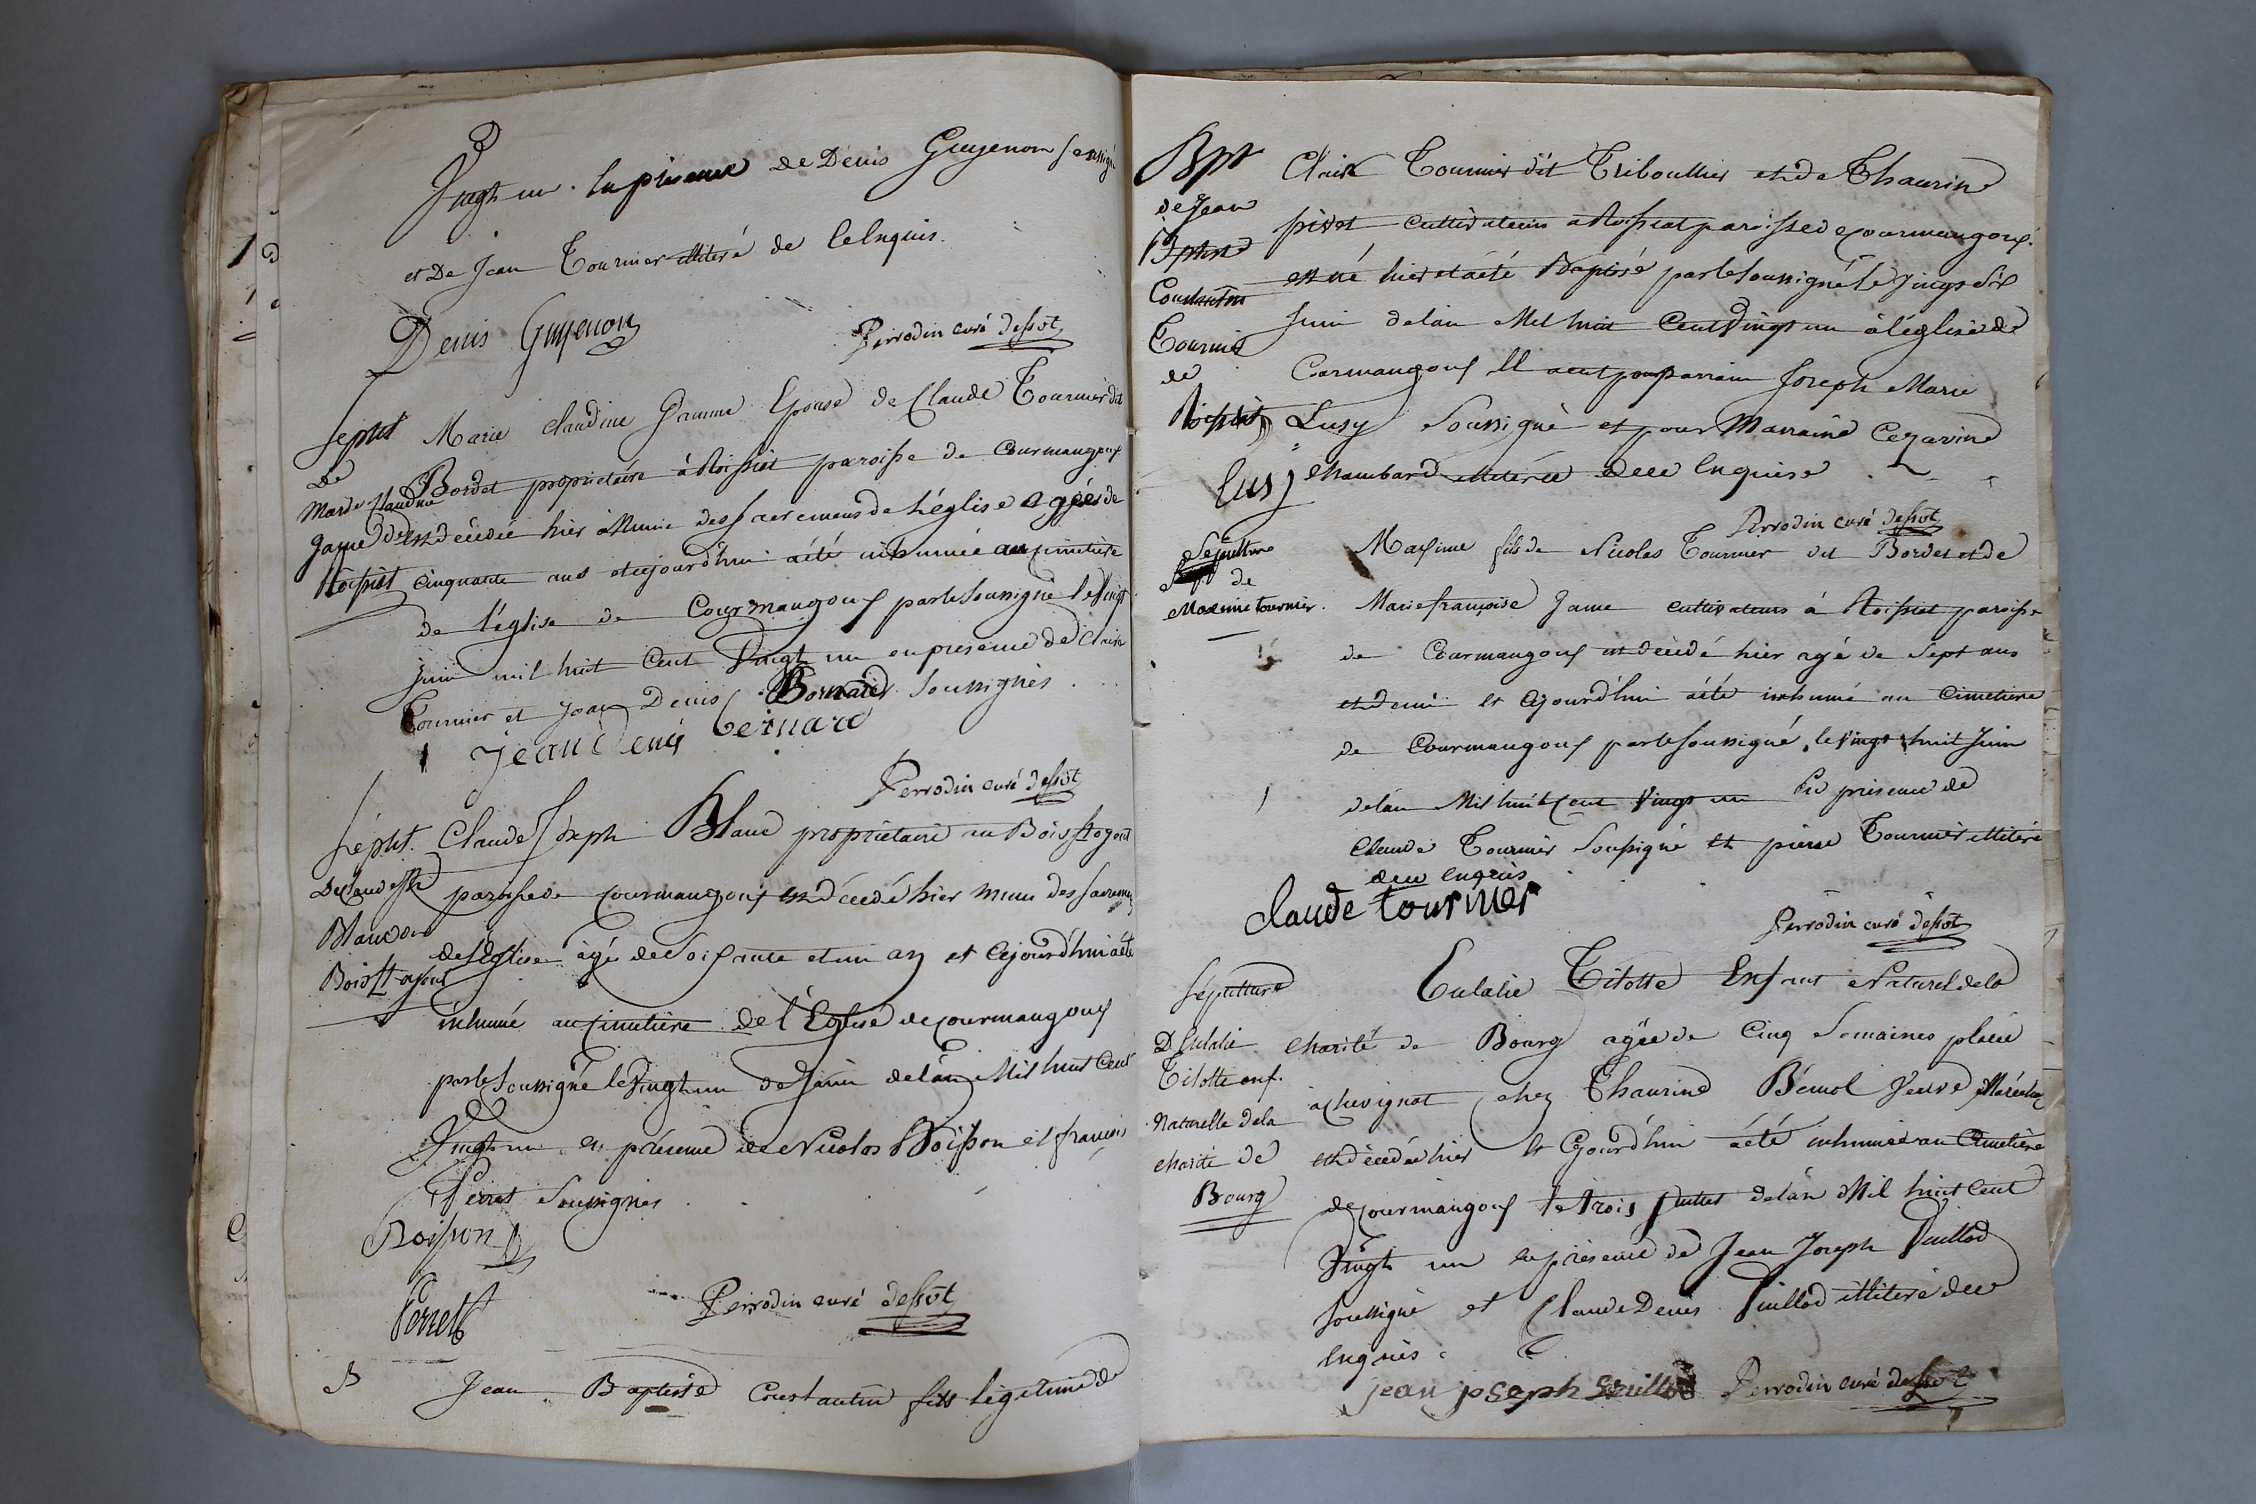 Vingt un. En présence de Denis Guyenon soussigné
et De Jean Tournier illitéré de ce Enquis.
Denis Guyenon
Perrodin curé dessvt
Sepult
de
Marie Claudine
Jame de
Roissiat
Marie Claudine Jamme Epouse de Claude Tournier dit
Bordet propriétaire à Roissiat paroisse de Courmangoux
est décédée hier Munie des sacremens de l'église agée de
cinquante ans et cejourd'hui a été inhumée au cimetière
de l'église de Courmangoux par le soussigné le Vingt
juin mil huit Cent Vingt un en présence de Clair
Tournier et Jean Denis Bernard Soussignés
jean denis bernard
Perrodin curé dessvt
Sépult.
De Claude Jph
Blanc du
Bois St
Claude Joseph Blanc propriétaire au Bois St
paroisse de Courmangoux est décédé hier muni des sacremens
de l'Eglise âgé de Soixante et un an et Cejourd'hui a été
inhumé au cimetière de l'Eglise de Courmangoux
par le Soussigné le Vingt un de Juin de l'an Mil huit Cent
Vingt un en présence de Nicolas Boisson et françois
Perret Soussignés
Boisson
Perret
Perrodin curé dessvt
B
Jean Baptiste Constantin fils légitime de
Bpt
de Jean
Bptste
Constantin
Tournier
de
Roissiat
Clair Tournier dit Triboullier et de Thaurine
pivet cultivateurs a Roissiat paroisse de Courmangoux
est né hier et a été Baptisé par le soussigné le Vingt Six
Juin de l'an Mil huit Cent Vingt un à l'église de
Cormangoux Il a eut pour parrain Joseph Marie
Lusy Soussigné et pour Marraine Cezarine
Chambard illitérée de ce Enquise
Lusy
Perrodin curé dessvt
Sepulture
de
Maxime Tournier.
Maxime fils de Nicolas Tournier dit Bordet et de
Marie françoise Jame cultivateurs à Roissiat paroisse
de Courmangoux est décédé hier agé de Sept ans
et demi et Cejourd'hui a été inhumé au Cimetiere
de Courmangoux par le soussigné, le vingt huit Juin
de l'an Mil huit Cent Vingt un En présence de
Claude Tournier Soussigné et pierre Tournier illitéré
de ce enquis
claude tournier
Perrodin curé dessvt
Sepulture
D'Eulalie
Titotte enf.
Naturelle de la
charité de
Bourg
Eulalie Titotte Enfant Naturel de la
charité de Bourg agée de Cinq Semaines placée
a chevignat chez Thaurine Bémol Veuve
est décédée hier et Cejourd'hui a été inhumée au Cimetière
de Courmangoux le trois Juillet de l'an Mil huit Cent
Vingt un en présence de Jean Joseph Vuillod
soussigné et Claude Denis Vuillod illitéré de ce
enquis.
jean joseph Vuillod
Perrodin curé dessvt